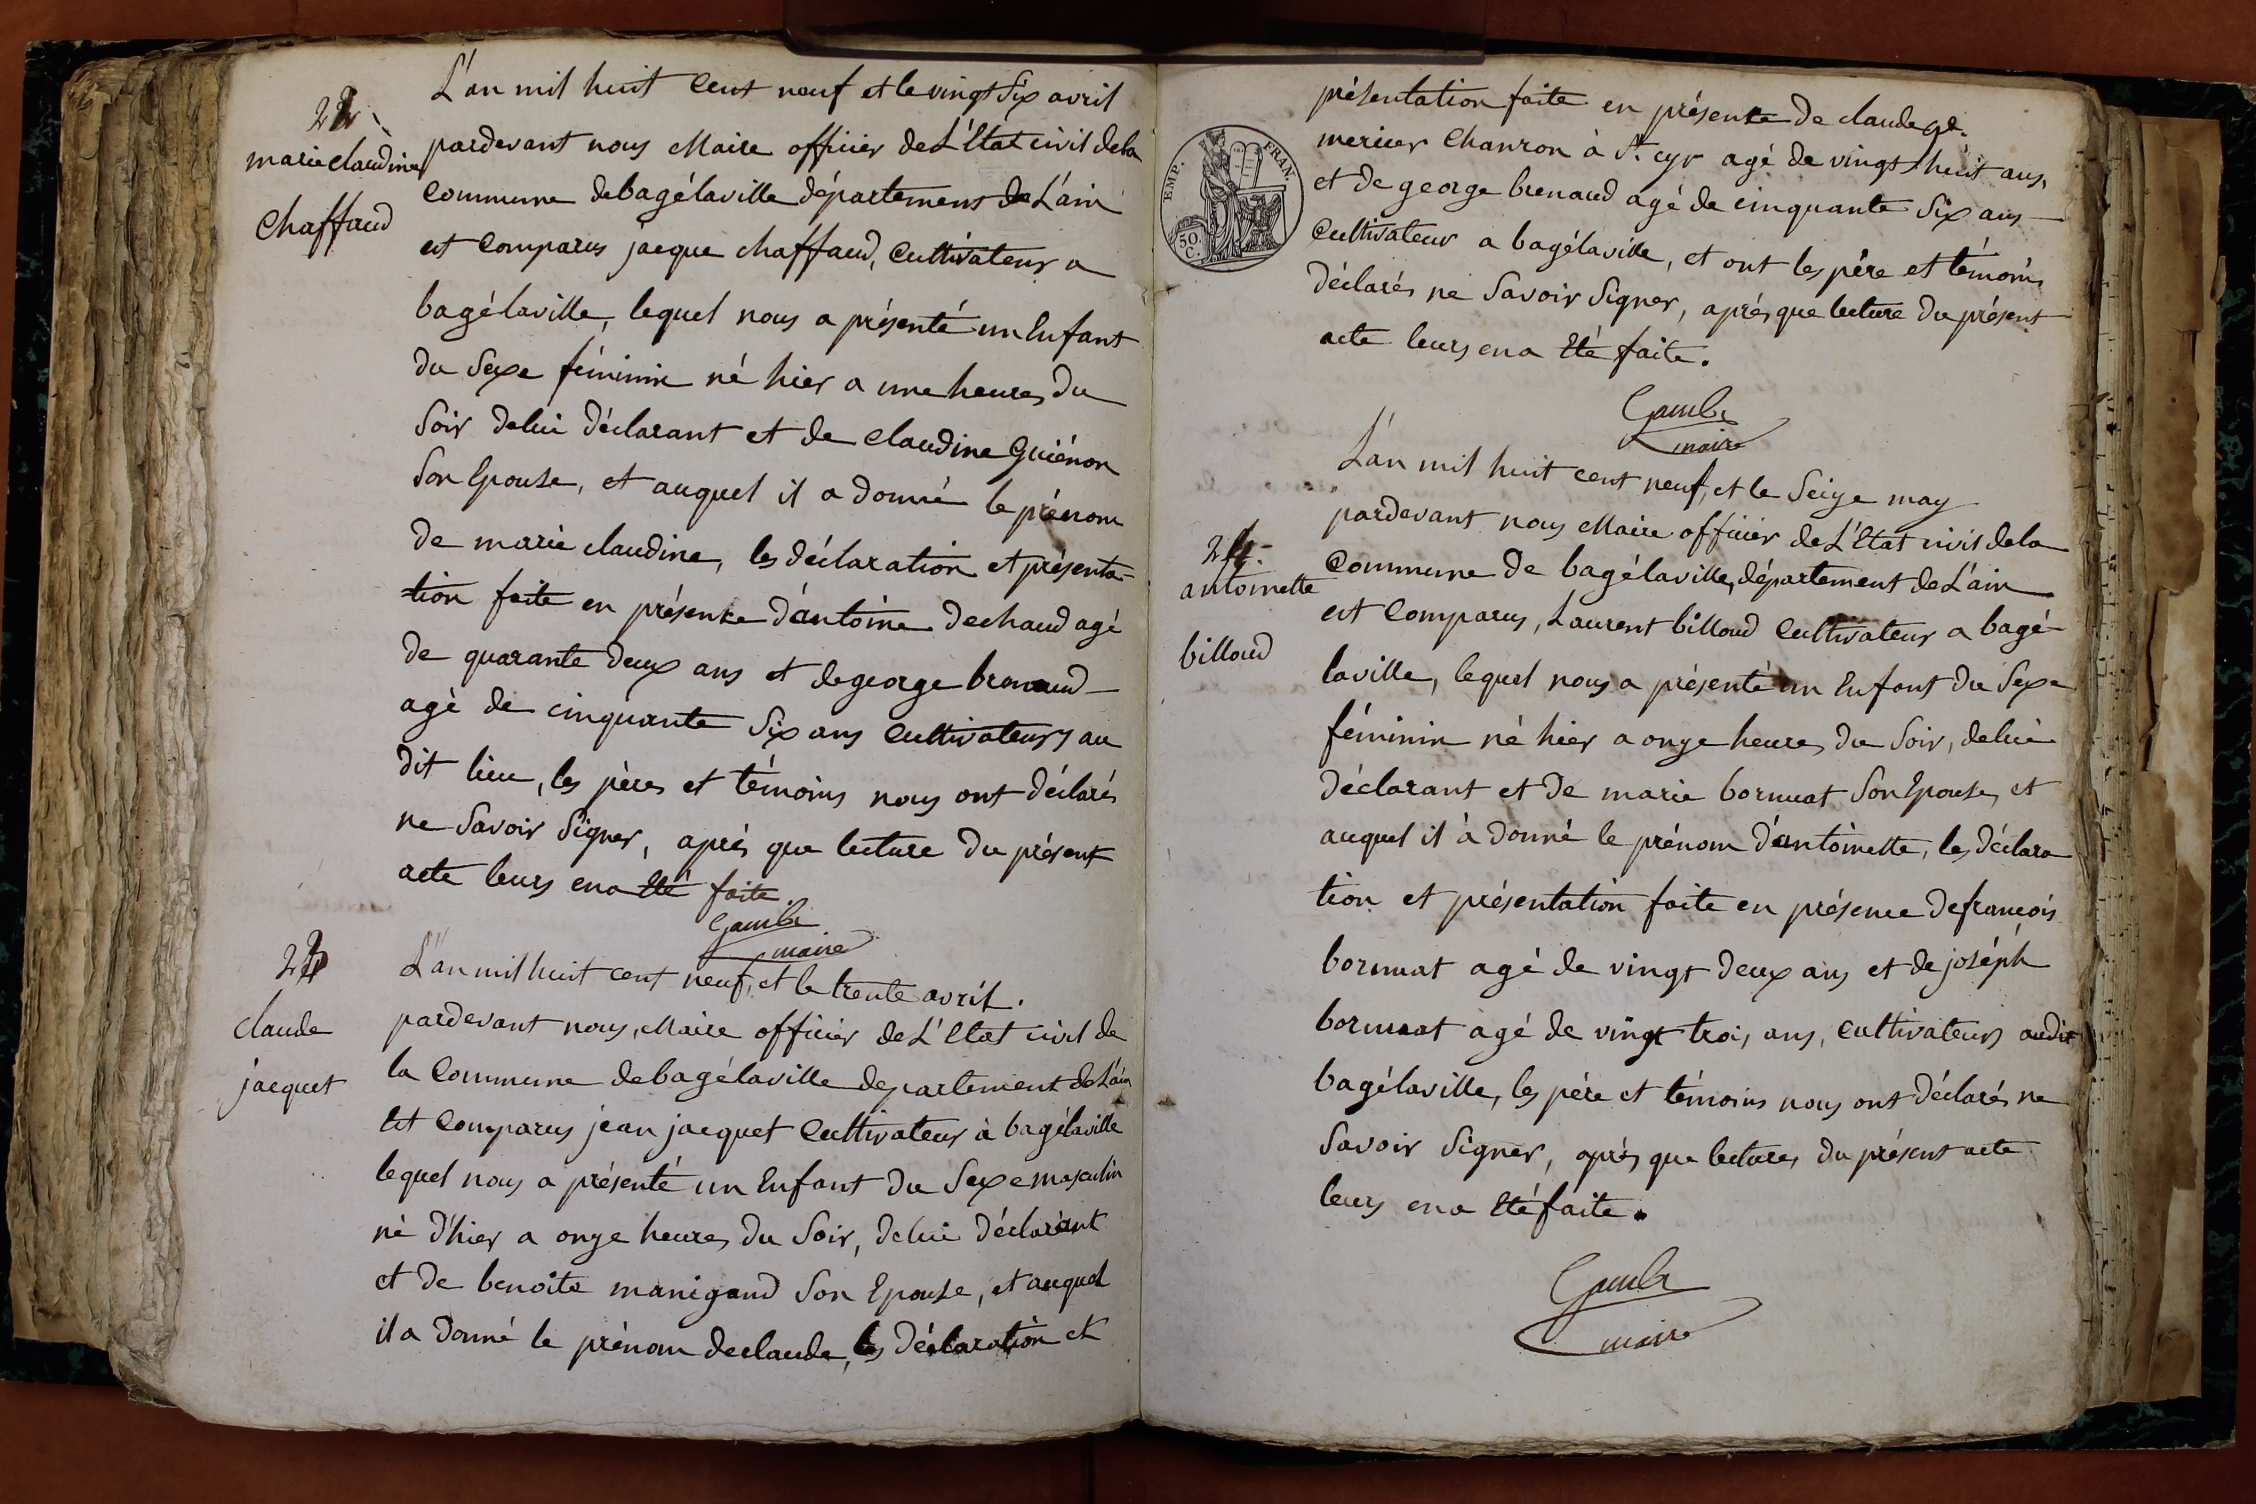 22
marie claudine
Chaffaud
L'an mil huit Cent neuf et le vingt Six avril
pardevant nous Maire officier de L'Etat civil dela
Commune debagélaville département de L'ain
est Comparus jacque chaffaud, Cultivateur a
bagélaville, lequel nous a présenté un Enfant
du Sexe féminin né hier a une heures du
Soir delui déclarant et de Claudine Guiénon
Son Epouse, et auquel il a donné le prénom
de marie claudine, les déclaration et présenta-
tion faite en présence d'antoine dechaud agé
de quarante deux ans et de george brenaud
agé de cinquante Six ans Cultivateurs au
dit lieu, les pères et témoins nous ont déclarés
ne Savoir Signer, après que lecture du présent
acte leurs ena Eté faite.
Gambr
maire
23
claude
jacquet
L'an mil huit cent neuf, et le trente avril.
pardevant nous, Maire officier de L'Etat civil de
la Commune debagélaville departement de L'ain
Est Comparus jean jacquet Cultivateur à bagélaville
lequel nous a présenté un Enfant du Sexe masculin
né d'hier a onze heures du Soir, delui déclarant
et de benoite manigand Son Epouse, et auquel
il a donné le prénom declaude, les déclaration et
EMP. FRAN.
50.
C.
présentation faite en présence de claude ge.
mericer Chanron à St. cyr agé de vingt huit ans,
et de george brenaud agé de cinquante Six ans
Cultivateur a bagélaville, et ont les père et témoins
déclarés ne Savoir Signer, après que lecture du présent
acte leurs ena Eté faite.
Gambr
maire
24
antoinette
billoud
L'an mil huit cent neuf, et le Seize may
pardevant nous Maire officier de L'Etat civil dela
Commune de bagélaville, département de L'ain
est Comparus, Laurent billoud Cultivateur a bagé-
laville, lequel nous a présenté un Enfant du Sexe
féminin né hier a onze heures du Soir, delui
déclarant et de marie bornuat Son Epouse, et
auquel il à donné le prénom d'antoinette, les déclara
tion et présentation faite en présence defrancois
bornuat agé de vingt deux ans et de joséph
bornuat agé de vingt trois ans, Cultivateurs audit
bagélaville, les père et témoins nous ont déclarés ne
Savoir Signer, après que lectures du présent acte
leurs ena Eté faite.
Gambr
maire